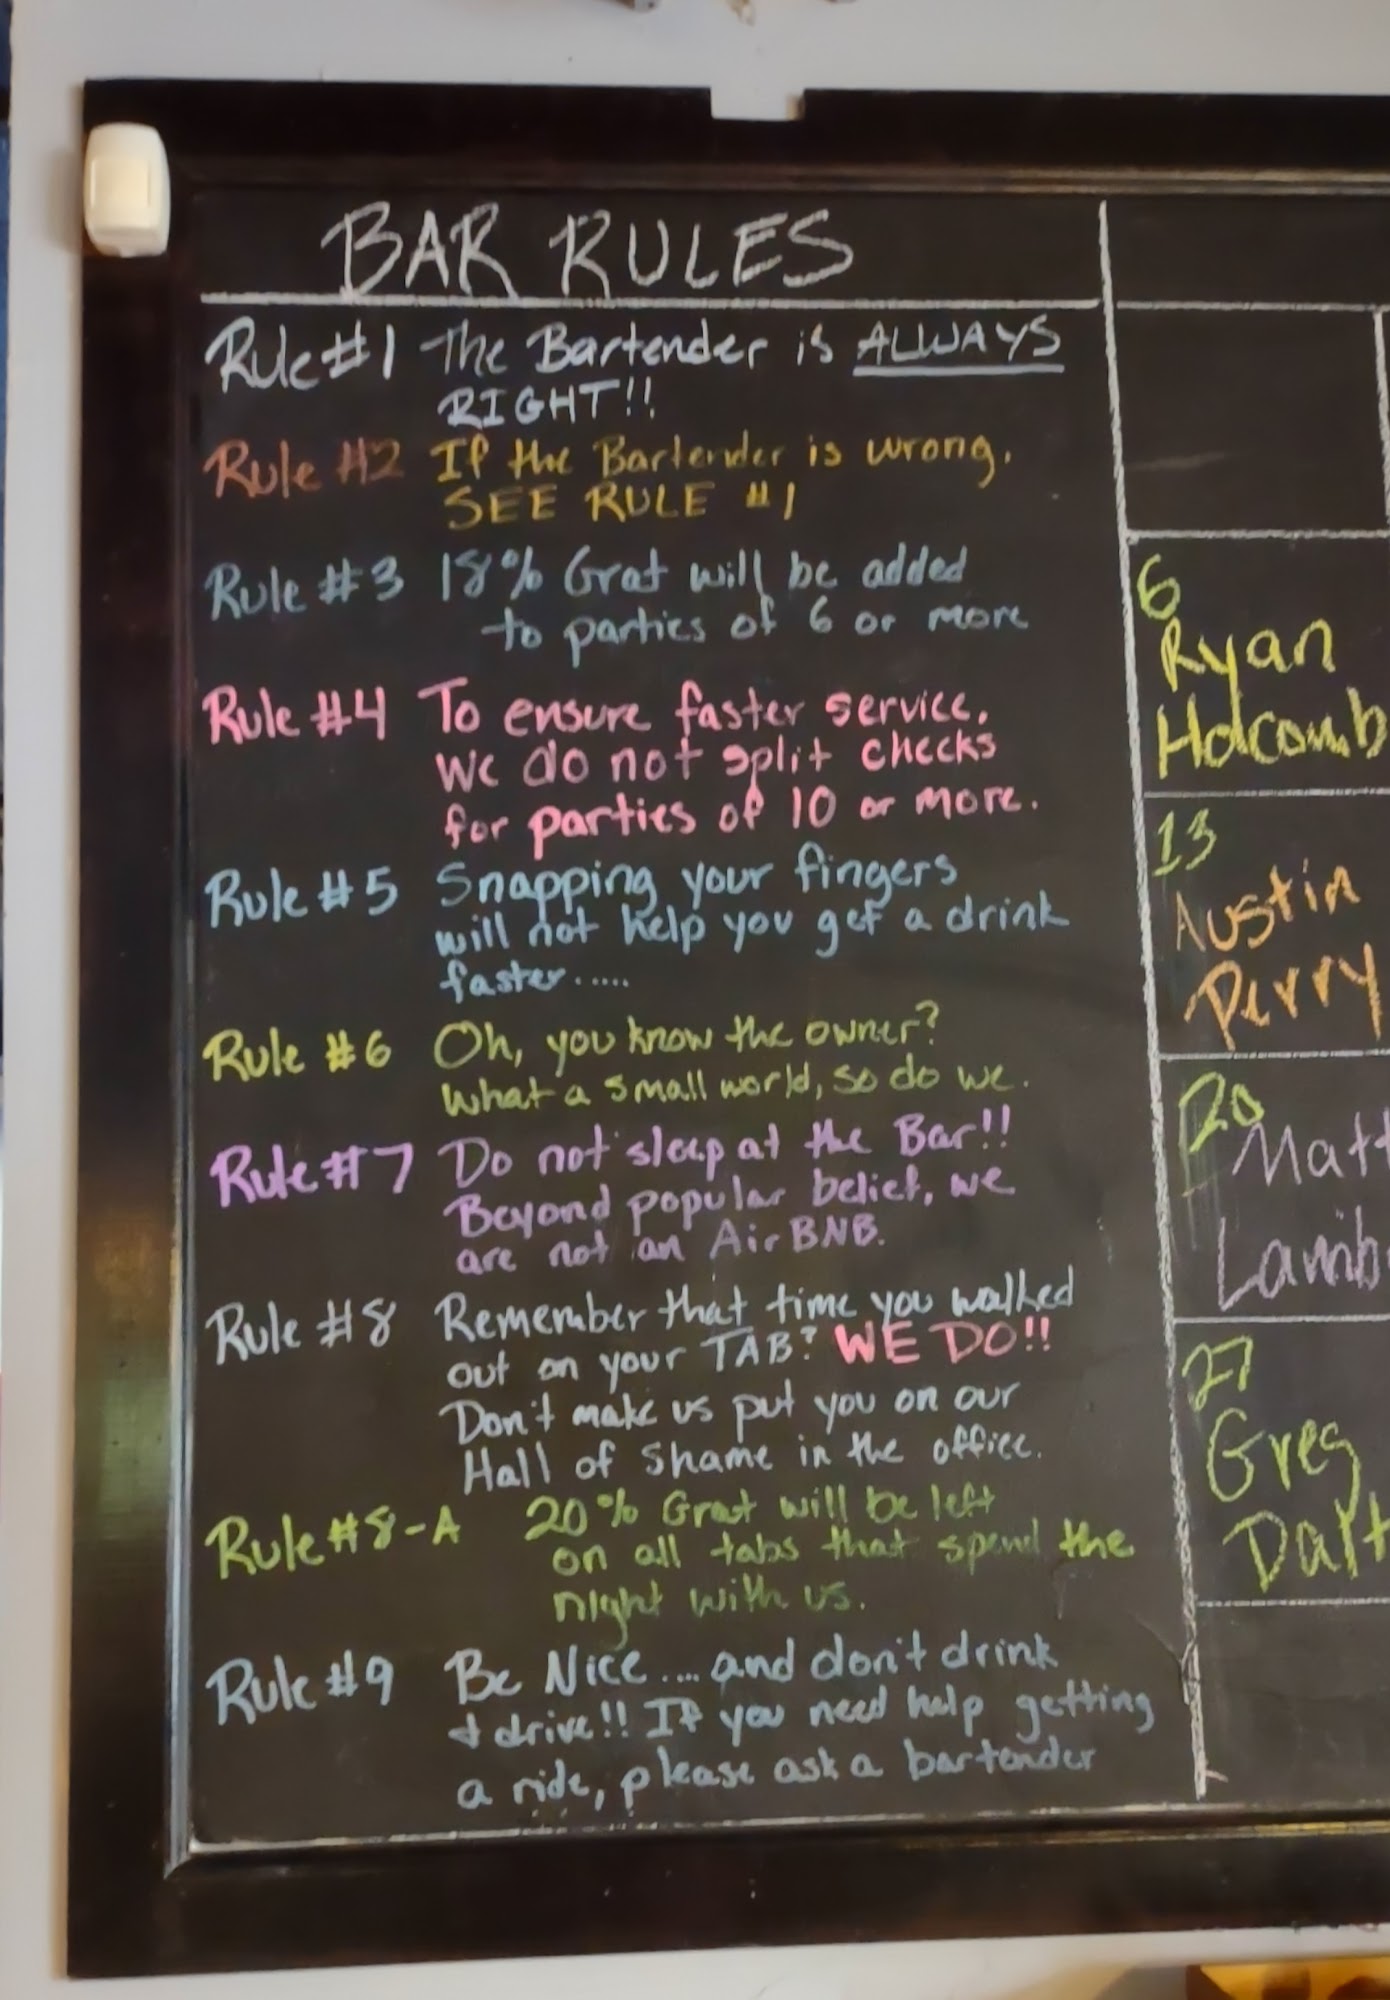 BAR RULES
Rule #1 The Bartender is ALWAYS
RIGHT!!
Rule #2 If the Bartender is wrong.
SEE RULE #1
Rule #3 18% Grat will be added
to parties of 6 or more
Rule #4 To ensure faster service.
We do not split checks
for parties of 10 or more.
Rule #5 Snapping your fingers
will not help you get a drink
faster.....
Rule #6 Oh, you know the owner?
What a small world, so do we.
Rule #7 Do not sleep at the Bar!!
Beyond popular belief, we
are not an AirBNB.
Rule #8 Remember that time you walked
out on your TAB? WE DO!!
Don't make us put you on our
Hall of Shame in the office.
Rule #8-A 20% Grat will be left
on all tabs that spend the
night with us.
Rule #9 Be Nice.... and don't drink
& drive!! If you need help getting
a ride, please ask a bartender
6
Ryan
Holcomb
13
Austin
Perry
20
Matt
Lamb
27
Greg
Dalt